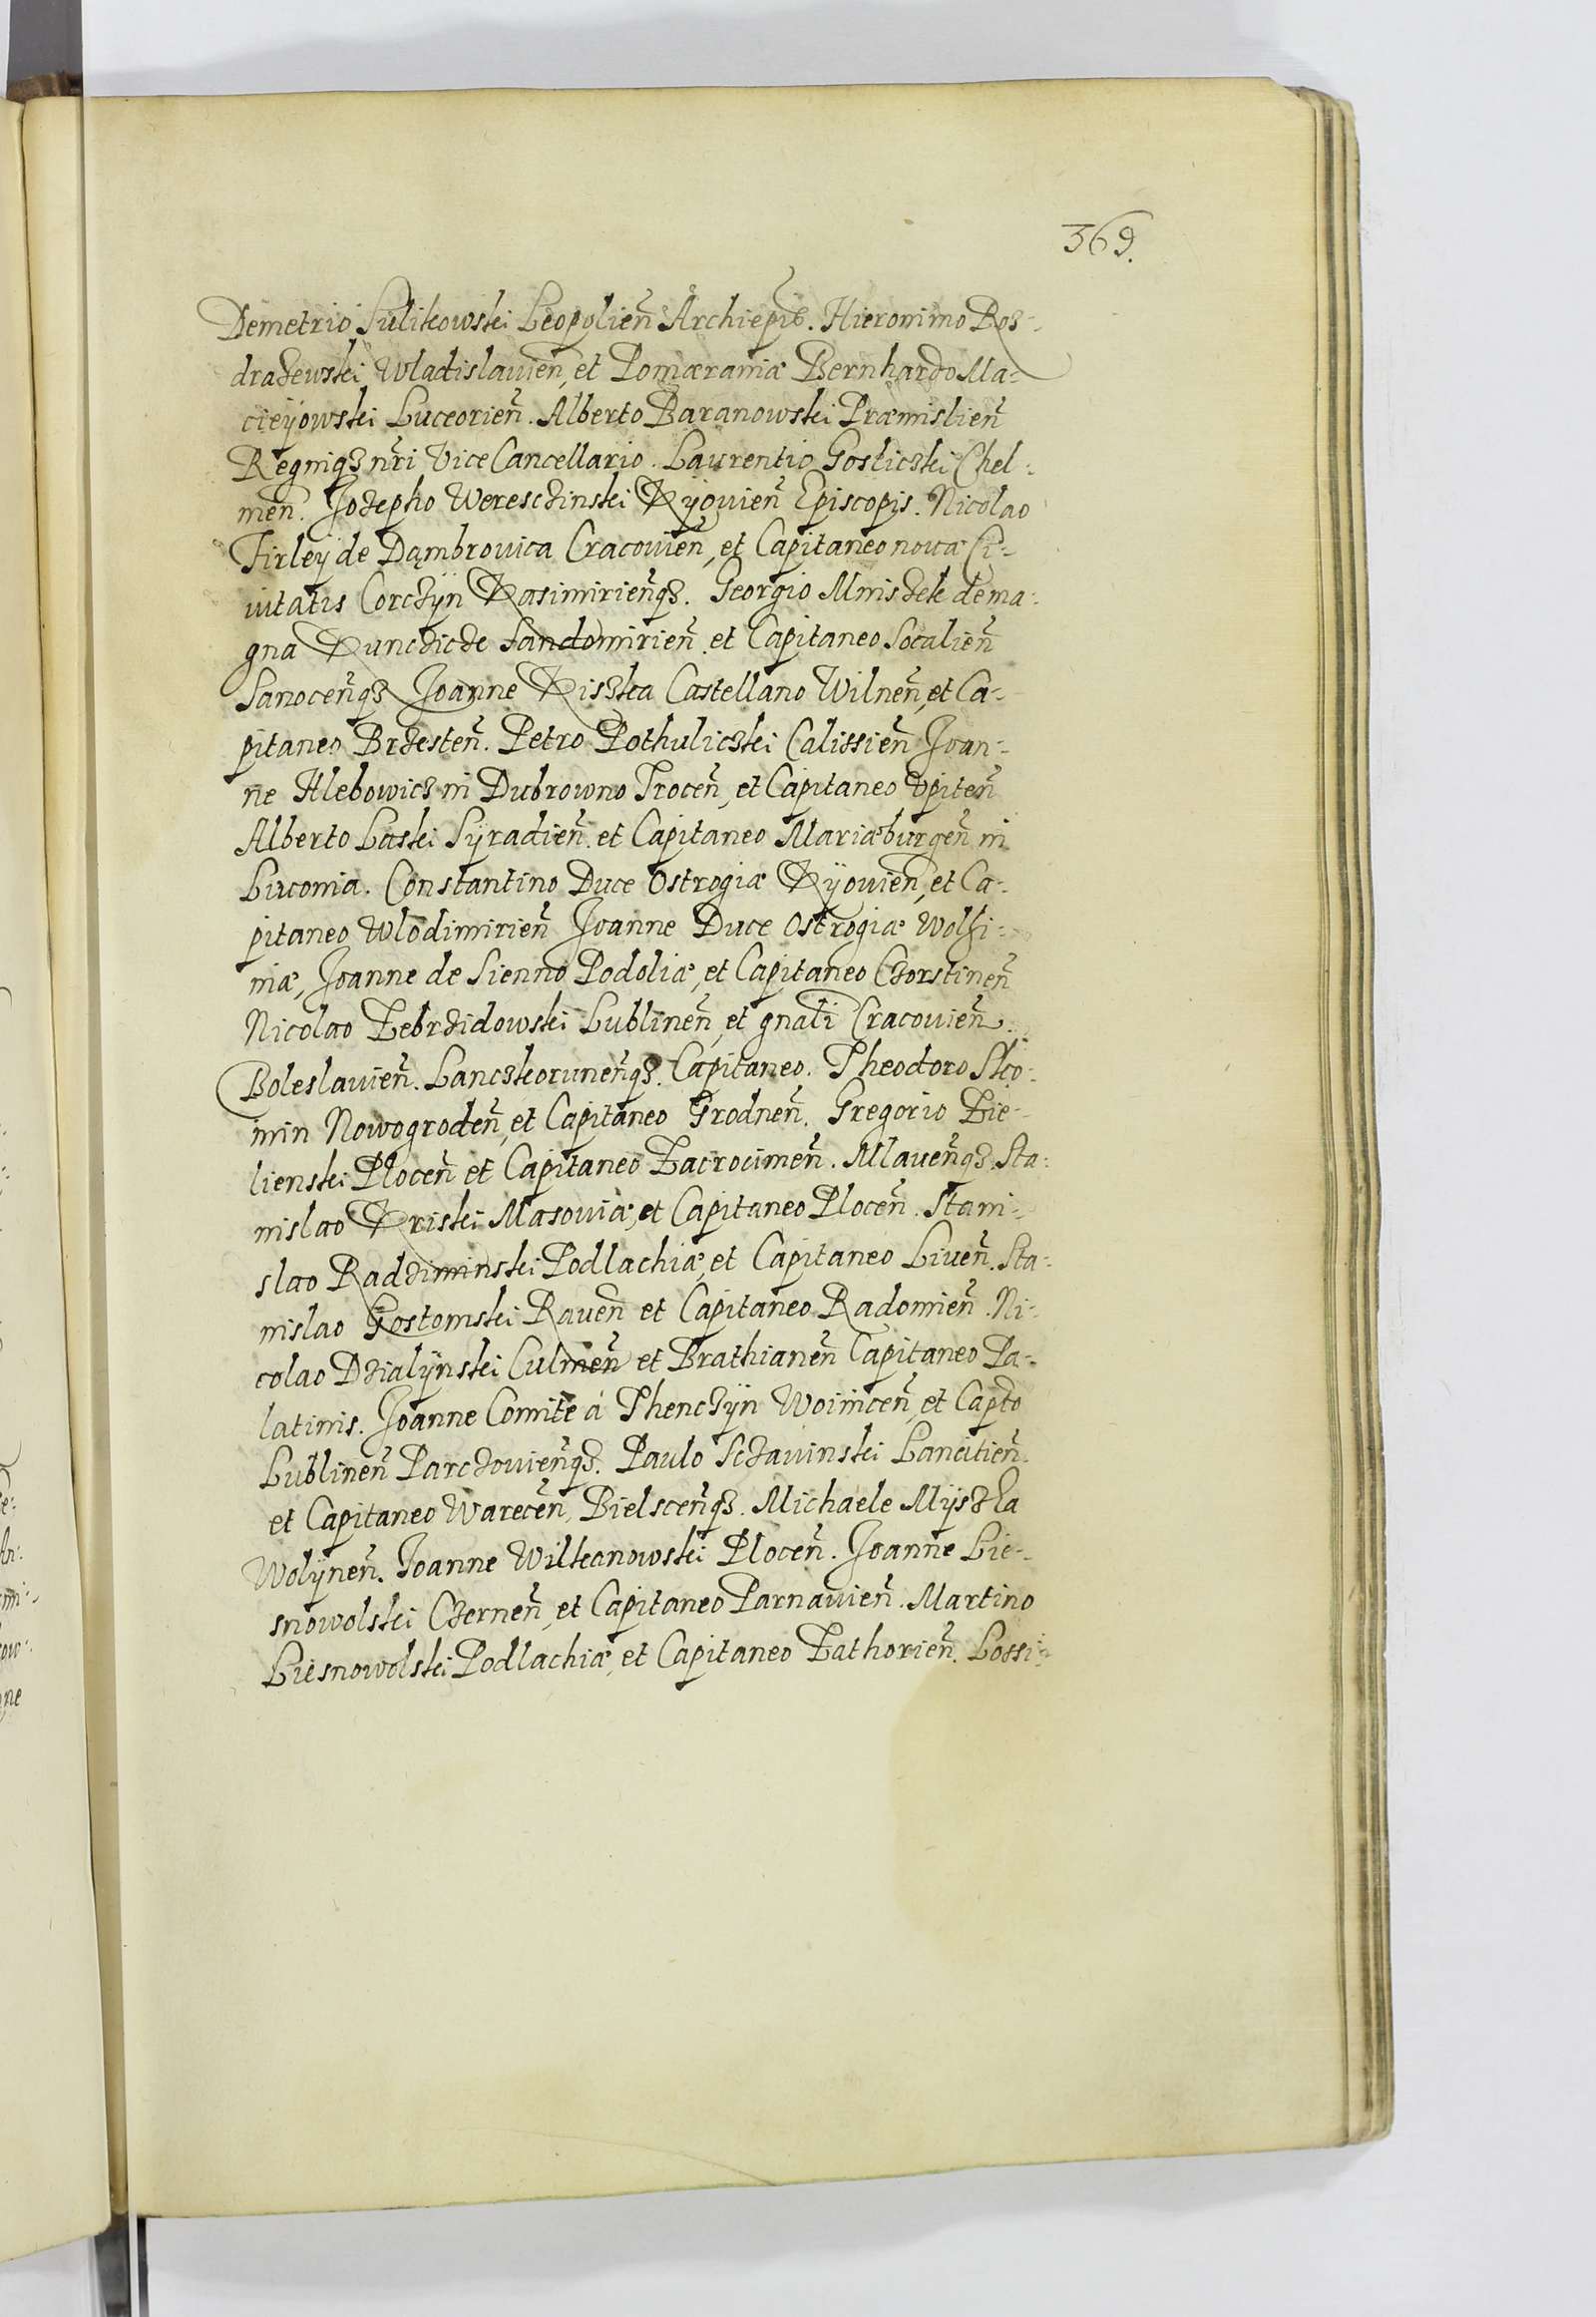 369.
Demetrio Sulikowski Leopolien̄ Archiepis̄. Hieronimo Roz-
drazewski Wladislauien̄, et Pomæraniæ Bernhardo Ma-
cieÿowski Luceorien̄. Alberto Baranowski Præmislien̄
Regniqȝ nr̄i Vice Cancellario. Laurentio Goslicȝki Chel-
men̄. Jozepho Wereszinski Kÿouien̄ Episcopis. Nicolao
Firleÿ de Dąmbrouica Cracouien̄, et Capitaneo nouæ Ci-
uitatis Corczÿn Kasimirien̄qȝ. Georgio Mniszek de ma-
gna Kunczicze Sandomirien̄. et Capitaneo Socalien̄
Sanocen̄qȝ Joanne Kisȝka Castellano Wilnen̄, et Ca-
pitaneo Brzesten̄. Petro Pothulicȝki Calissien̄ Joan-
ne Hlebowicȝ in Dubrowno Trocen̄, et Capitaneo Vpiten̄
Alberto Laski Sÿradien̄. et Capitaneo Mariæburgen̄ in
Liuonia. Constantino Duce Ostrogiæ Kÿouien̄, et Ca-
pitaneo Wlodimirien̄ Joanne Duce Ostrogiæ Wolhi-
niæ, Joanne de Sienno Podoliæ, et Capitaneo Czorstinen̄
Nicolao Zebrzidowski Lublinen̄, et gn̄ali Cracouien̄.
Boleslauien̄. Lancȝkorunen̄qȝ. Capitaneo. Theodoro Sko-
min Nowogroden̄, et Capitaneo Grodnen̄. Gregorio Zie-
lienski Plocen̄ et Capitaneo Zacrocimen̄. Mlauen̄qȝ. Sta-
nislao Kriski Masouiæ, et Capitaneo Plocen̄. Stani-
slao Radziminski Podlachiæ, et Capitaneo Liuen̄. Sta-
nislao Gostomski Rauen̄ et Capitaneo Radomien̄. Ni-
colao Dzialÿnski Culmen̄ et Brathianen̄ Capitaneo Pa-
latinis. Joanne Comite á Thenczÿn Woinicen̄, et Capto
Lublinen̄ Parczouien̄qȝ. Paulo Sczauinski Lancitien̄.
et Capitaneo Warecen̄, Bielscen̄qȝ. Michaele Mÿszka
Wolÿnen̄. Joanne Wilkanowski Plocen̄. Joanne Lie-
snowolski Czernen̄, et Capitaneo Parnauien̄. Martino
Liesnowolski Podlachiæ, et Capitaneo Zathorien̄. Lossi-